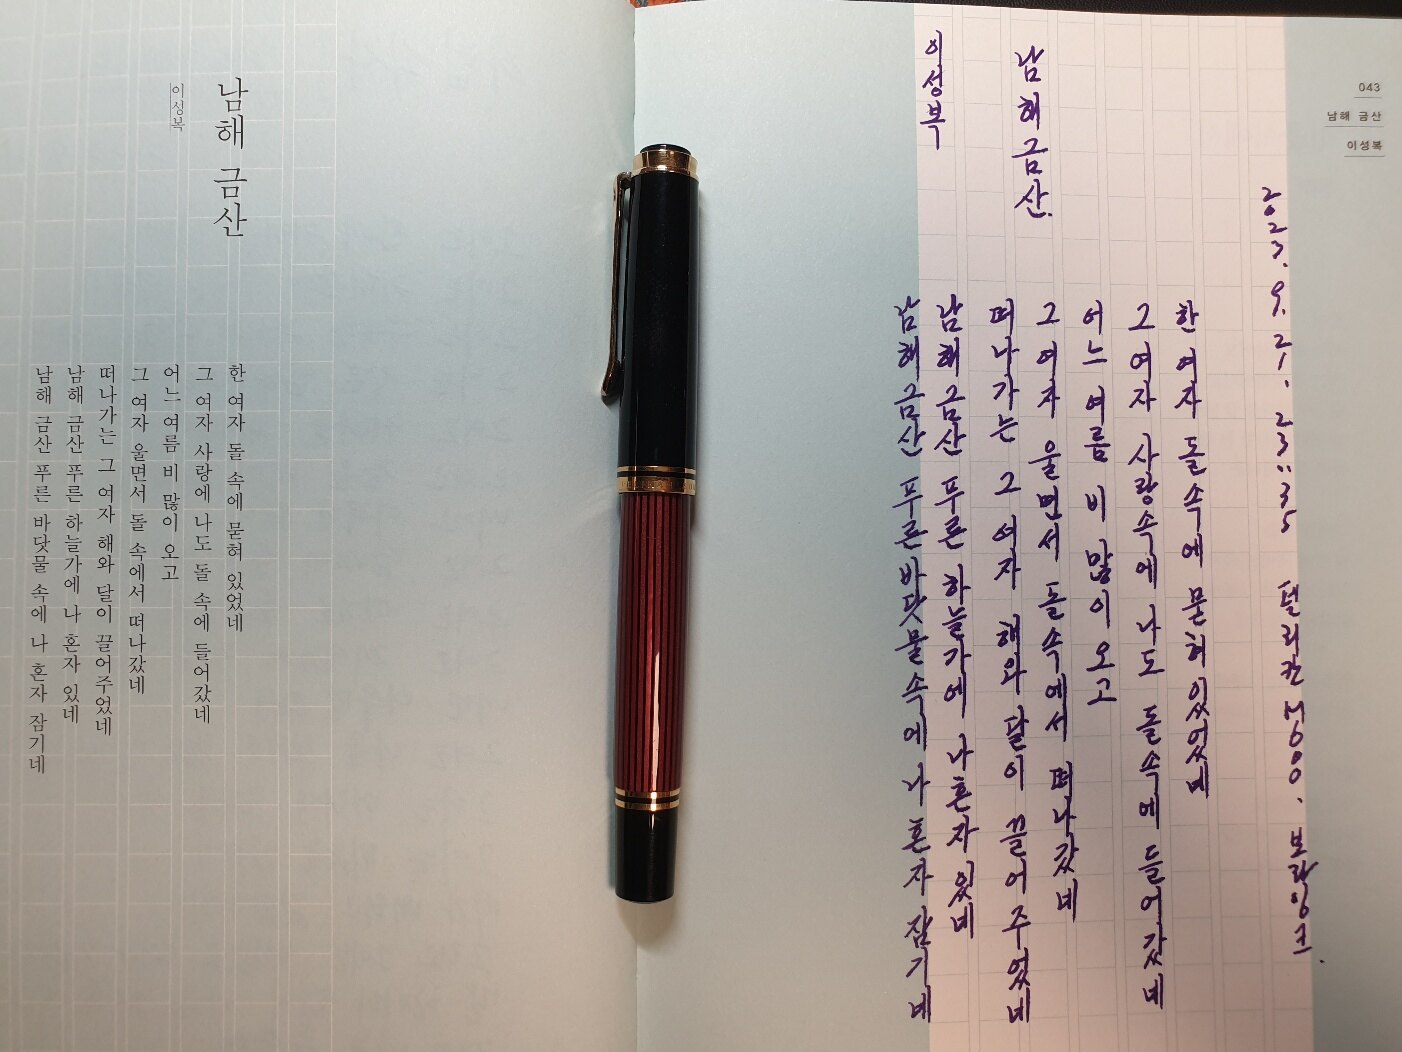 남해 금산
이성복
한 여자 돌 속에 묻혀 있었네
그 여자 사랑에 나도 돌 속에 들어갔네
어느 여름 비 많이 오고
그 여자 울면서 돌 속에서 떠나갔네
떠나가는 그 여자 해와 달이 끌어주었네
남해 금산 푸른 하늘가에 나 혼자 있네
남해 금산 푸른 바닷물 속에 나 혼자 잠기네
043
남해 금산
이성복
2023. 9. 21. 23:35 펠리칸 M600. 보라잉크.
한 여자 돌속에 묻혀있었네
그 여자 사랑속에 나도 돌속에 들어갔네
어느 여름 비 많이 오고
그 여자 울면서 돌속에서 떠나갔네
떠나가는 그 여자 해와 달이 끌어주었네
남해금산 푸른 하늘가에 나혼자있네
남해금산 푸른바닷물속에 나 혼자 잠기네
남해금산.
이성복